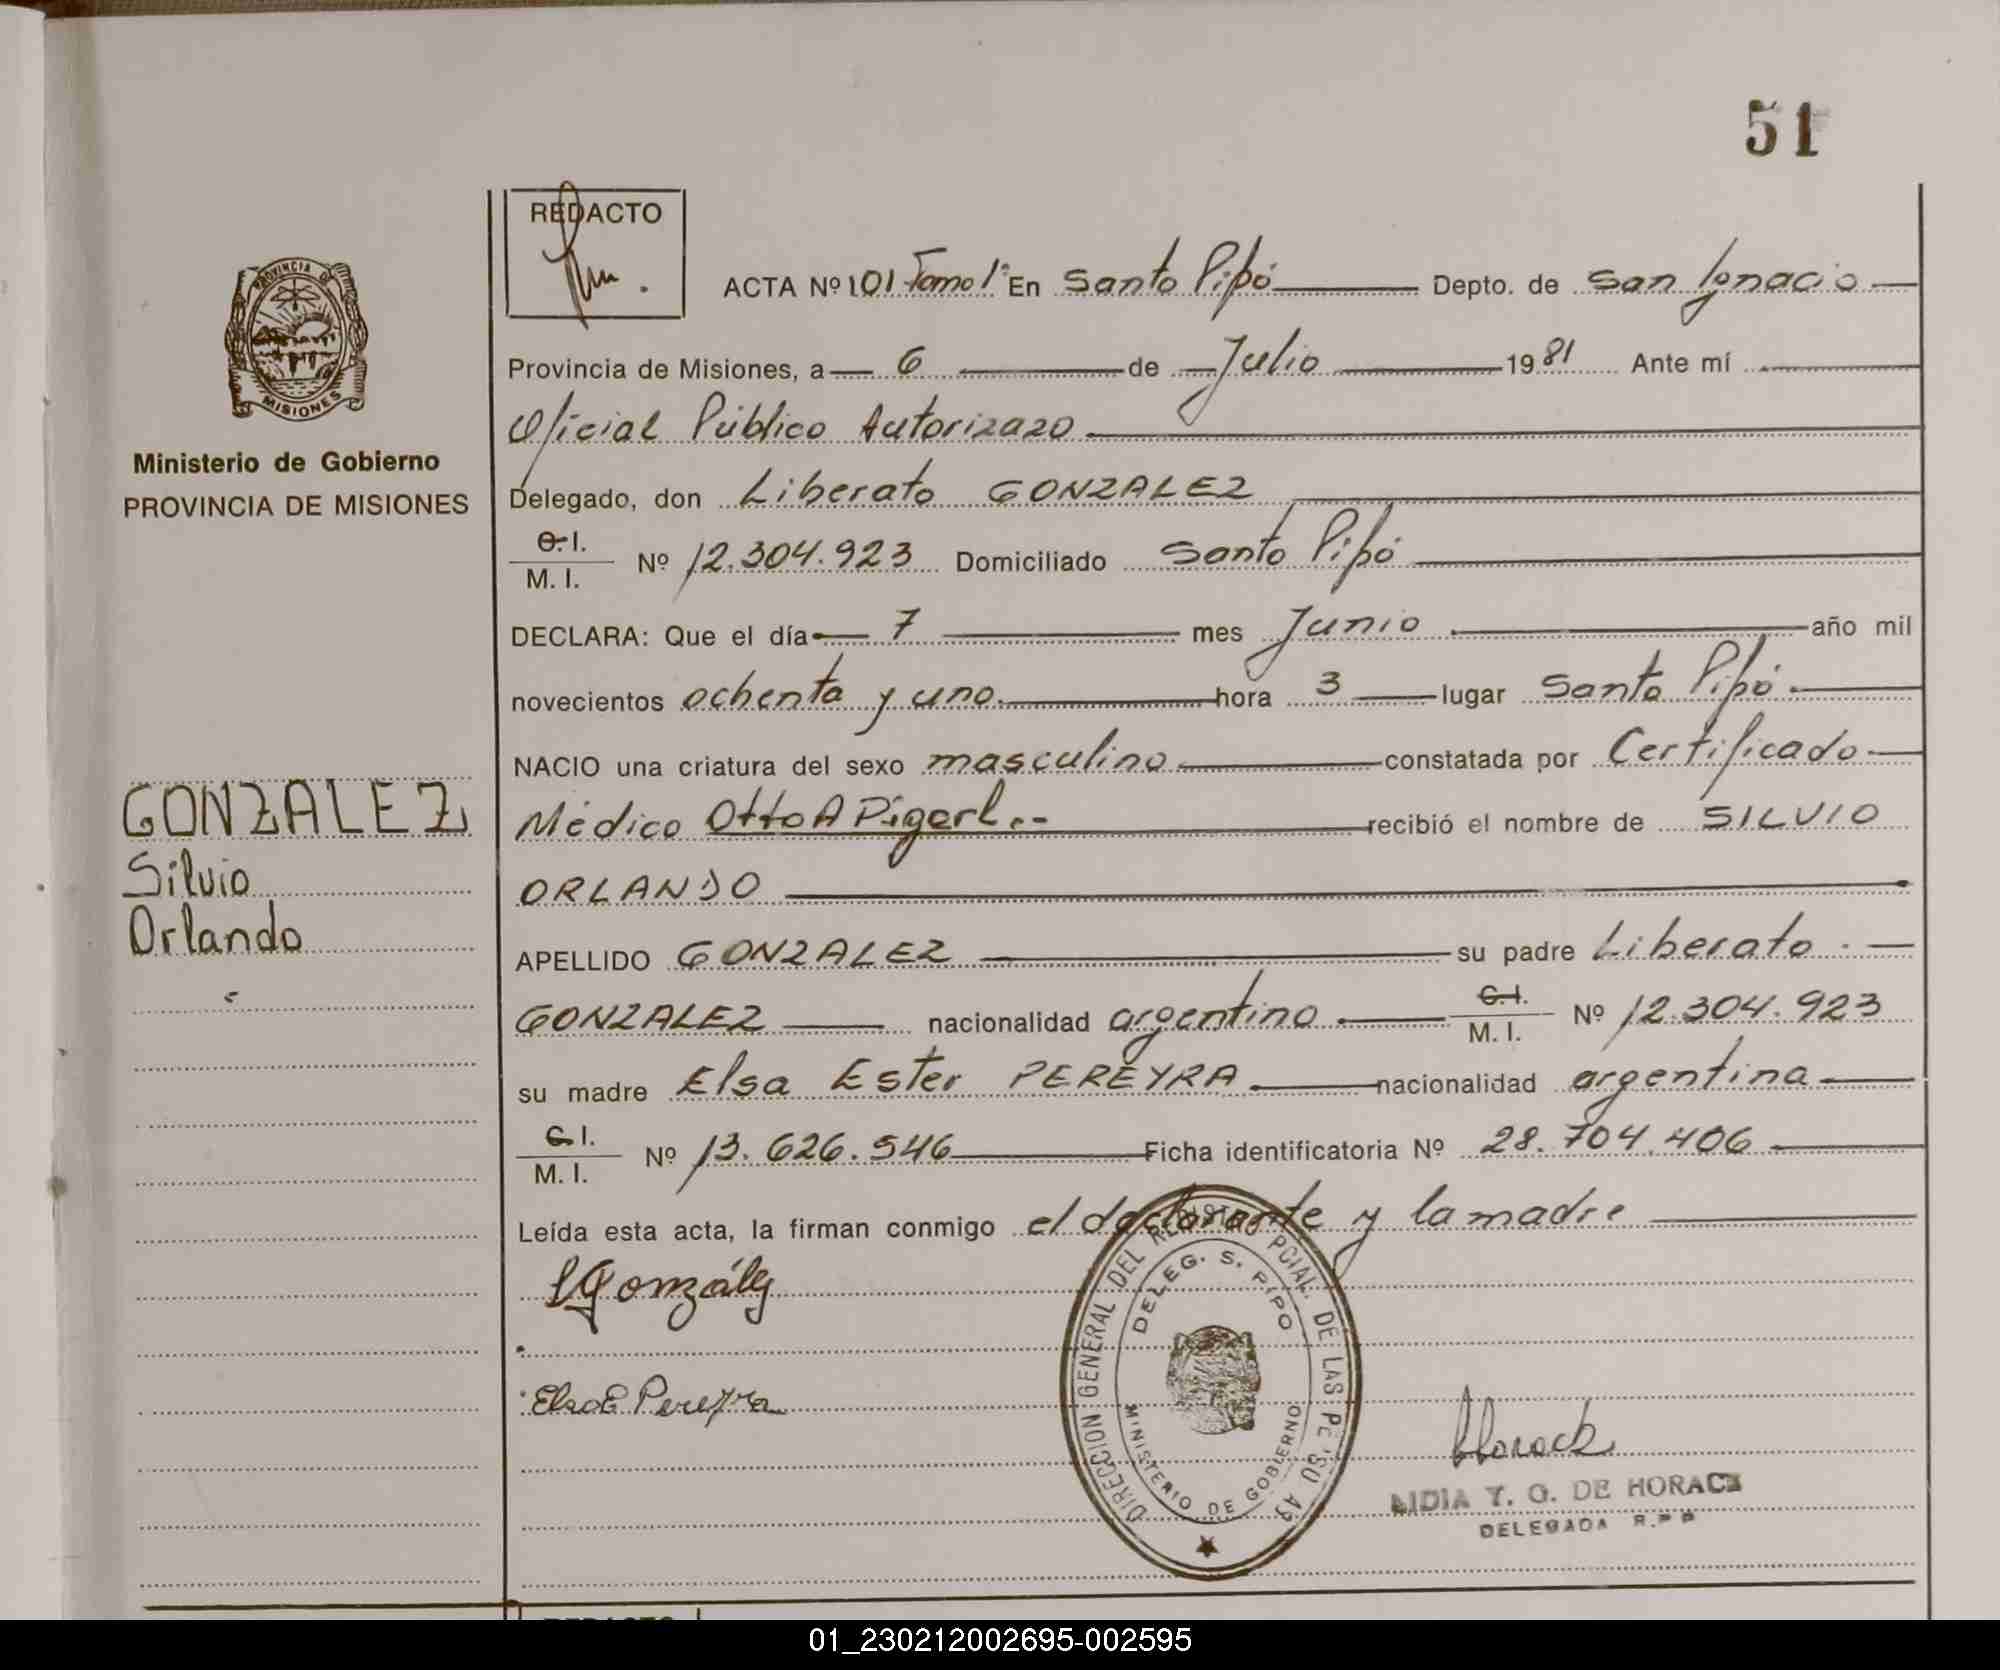 51
REDACTO
ACTA Nº 101 Tomo 1º En Santo Pipó Depto. de San Ignacio
Provincia de Misiones, a 6 de Julio 1981 Ante mí
Oficial Público Autorizado
Delegado, don Liberato GONZALEZ
C. I.
M. I. Nº 12.304.923 Domiciliado Santo Pipó
DECLARA: Que el día 7 mes Junio año mil
novecientos ochenta y uno hora 3 lugar Santo Pipó
NACIO una criatura del sexo masculino constatada por Certificado
Médico Otto A Pigerl.- recibió el nombre de SILVIO
ORLANDO
APELLIDO GONZALEZ su padre Liberato
GONZALEZ nacionalidad argentino C. I.
M. I. Nº 12.304.923
su madre Elsa Ester PEREYRA nacionalidad argentina
C. I.
M. I. Nº 13.626.546 Ficha identificatoria Nº 28.704.406
Leída esta acta, la firman conmigo el declarante y la madre
LGonzález
Elsa E Pereyra
DIRECCION GENERAL DEL REGISTRO PCIAL. DE LAS PERSONAS
DELEG. S. PIPO
MINISTERIO DE GOBIERNO
Horack
LIDIA Y. G. DE HORACK
DELEGADA R.P.P
PROVINCIA DE
MISIONES
Ministerio de Gobierno
PROVINCIA DE MISIONES
GONZALEZ
Silvio
Orlando
01_230212002695-002595